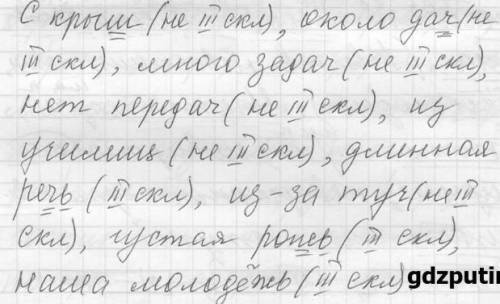 С крыш (не III скл), около дач (не
III скл), много задач (не III скл),
нет передач (не III скл), из
училищ (не III скл), длинная
речь (III скл), из-за туч (не III
скл), густая рожь (III скл),
наша молодёжь (III скл)
gdzputin